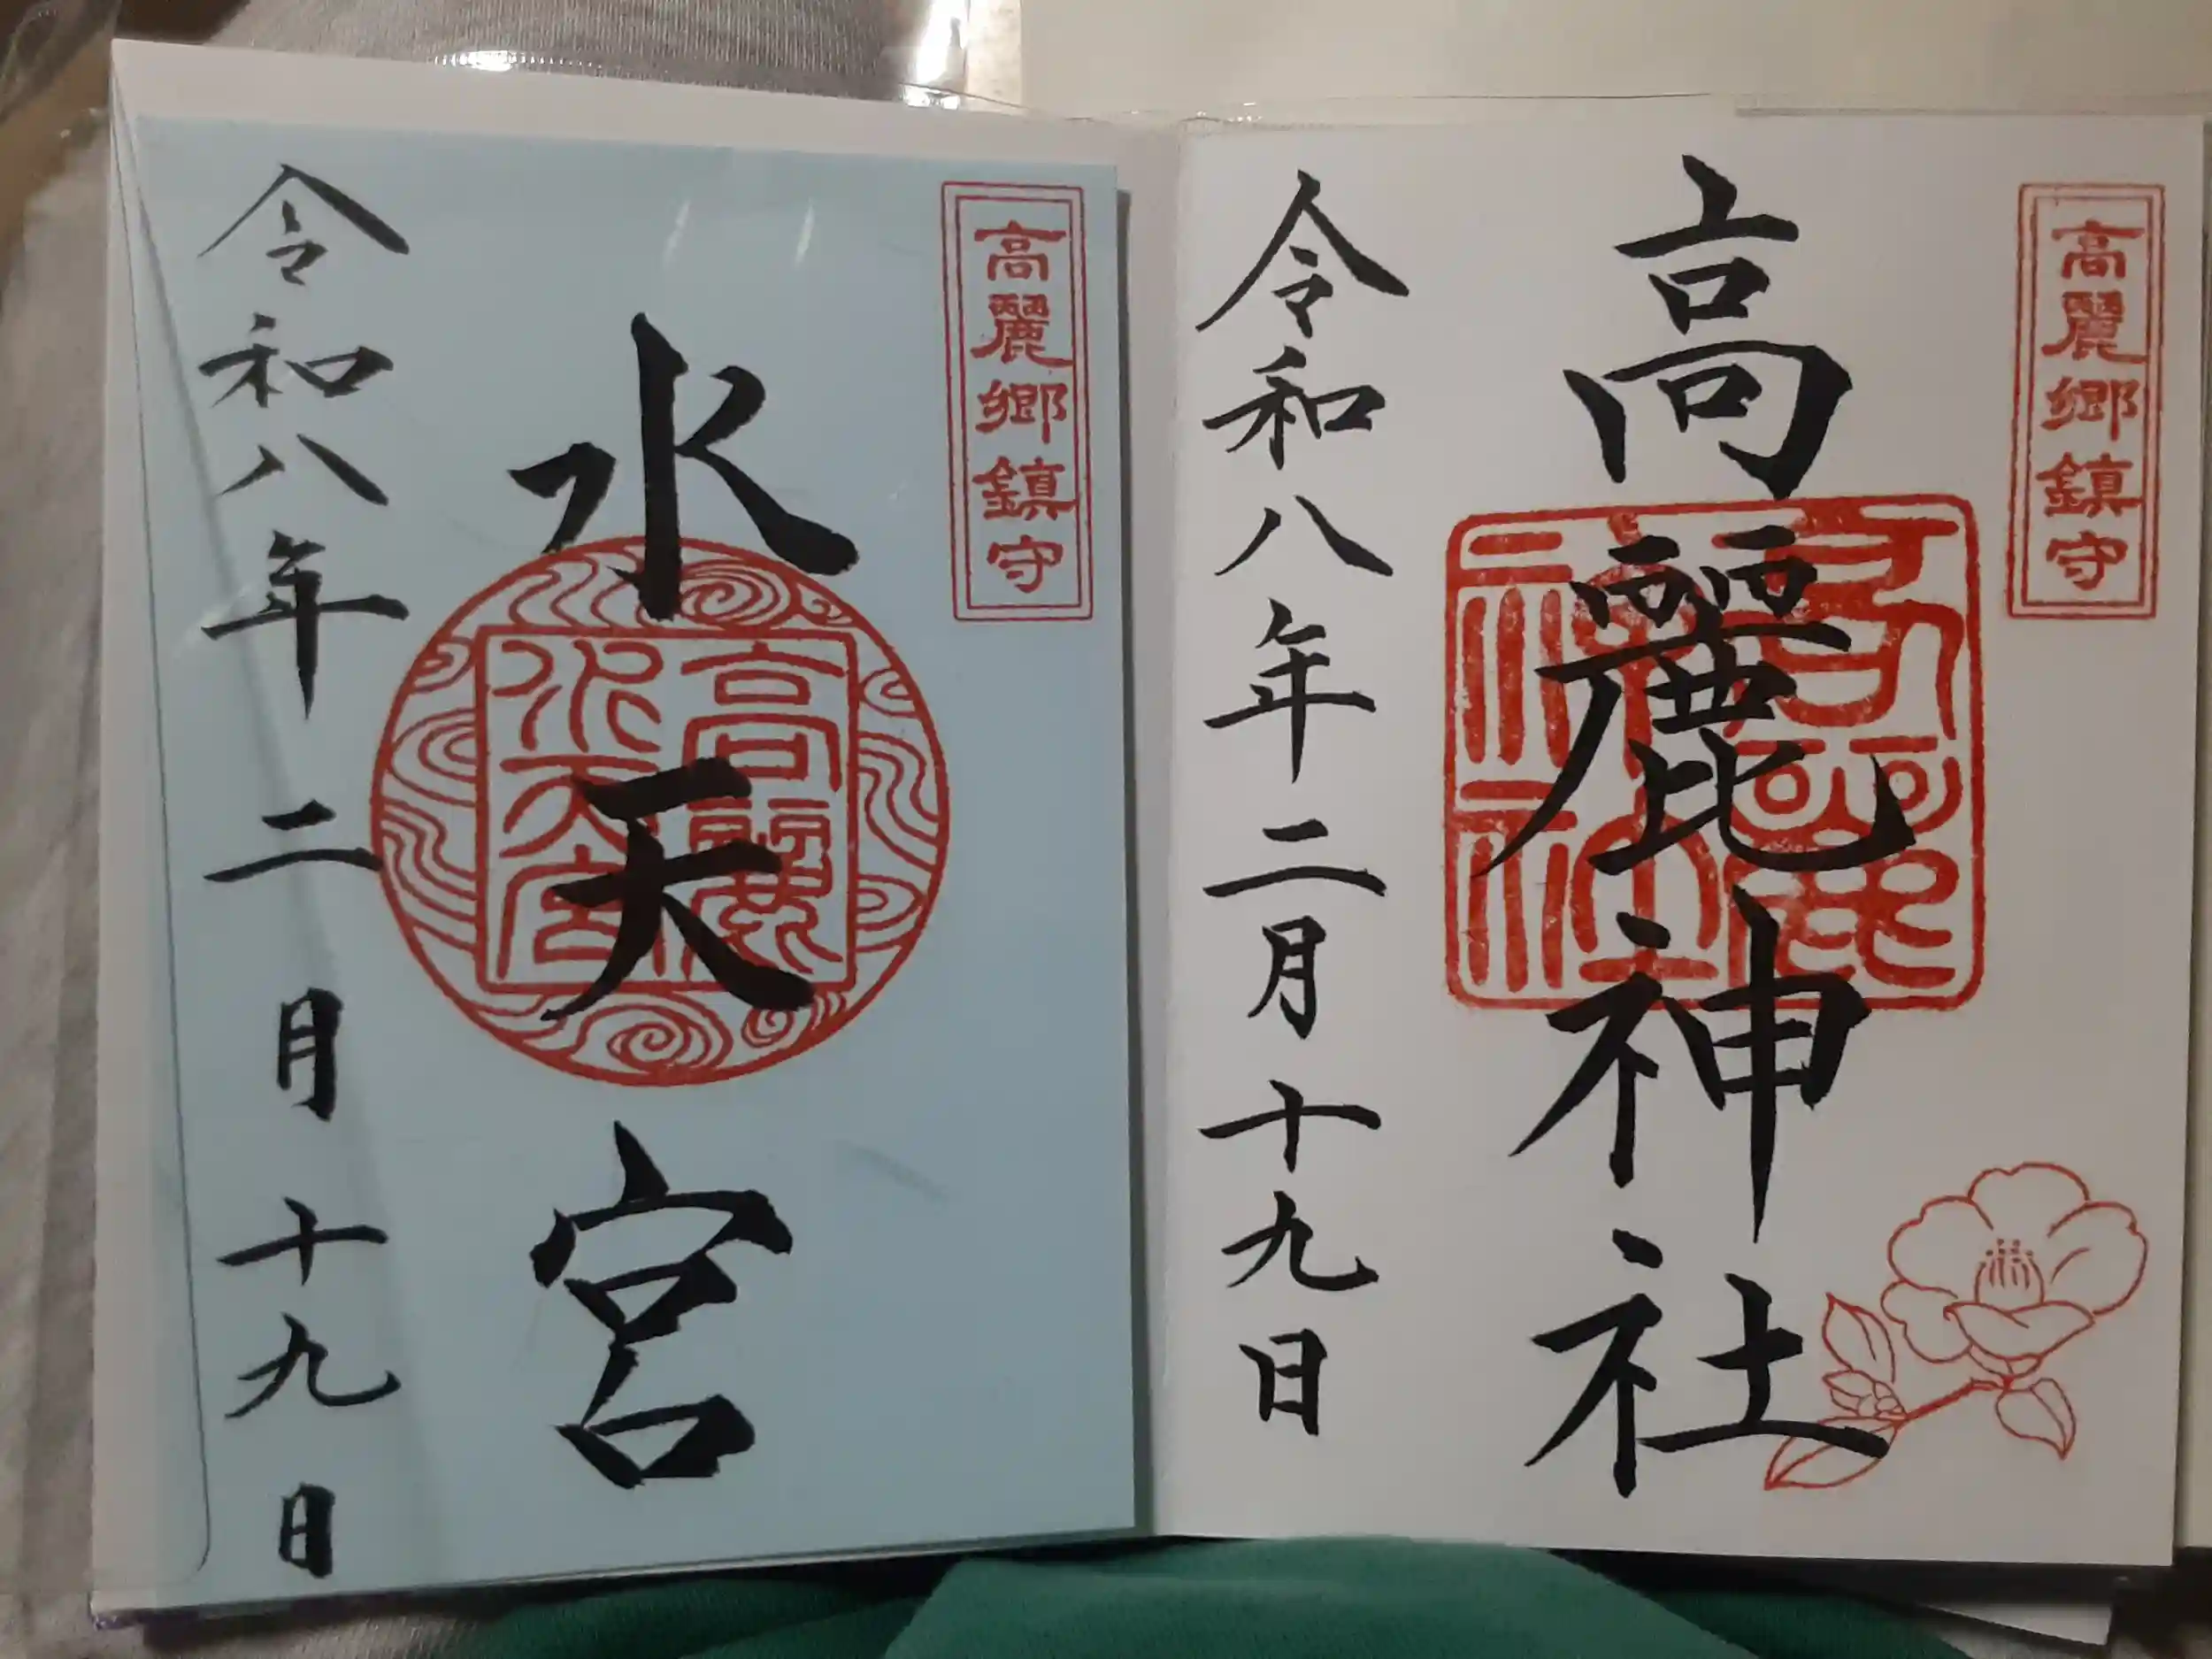 高麗郷鎮守
高麗神社
高麗神社
令和八年二月十九日
高麗郷鎮守
水天宮
高麗
水天宮
令和八年二月十九日